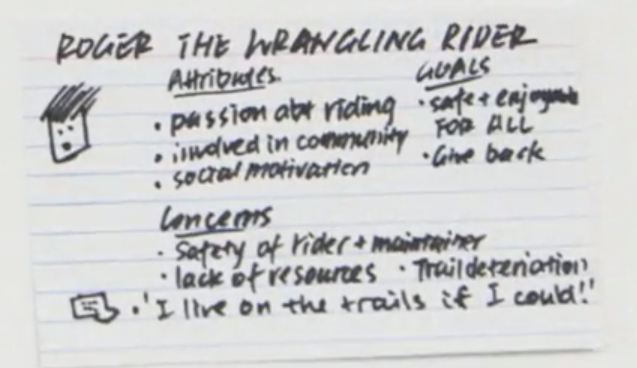 ROGER THE WRANGLING RIDER
Attributes
• passion abt riding
• involved in community
• social motivation
GOALS
• safe + enjoyable
FOR ALL
• Give back
Concerns
• Safety of rider + maintainer
• lack of resources • Trail deterioration
• 'I live on the trails if I could!'